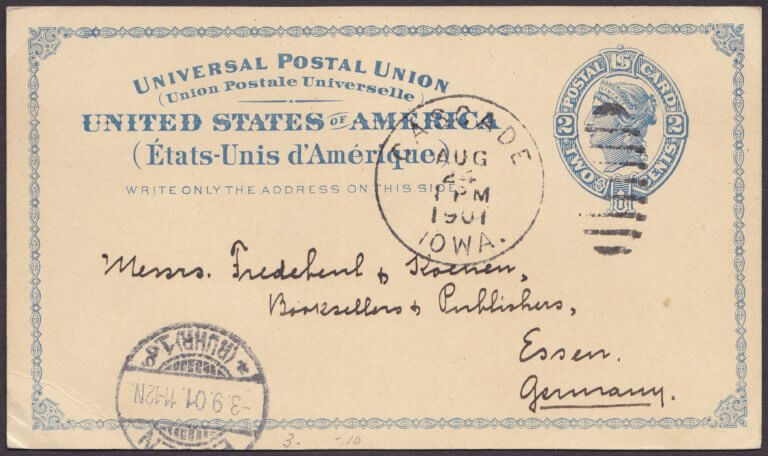 UNIVERSAL POSTAL UNION
(Union Postale Universelle)
UNITED STATES OF AMERICA
(États-Unis d'Amérique)
WRITE ONLY THE ADDRESS ON THIS SIDE
POSTAL U.S. CARD
2 2
TWO CENTS
CASCADE
AUG
24
1 PM
1901
IOWA.
Messrs. Fredebeul & Koenen,
Booksellers & Publishers,
Essen.
Germany.
(RUHR) 1
-3.9.01.11-12N.
ESSEN
3. -10